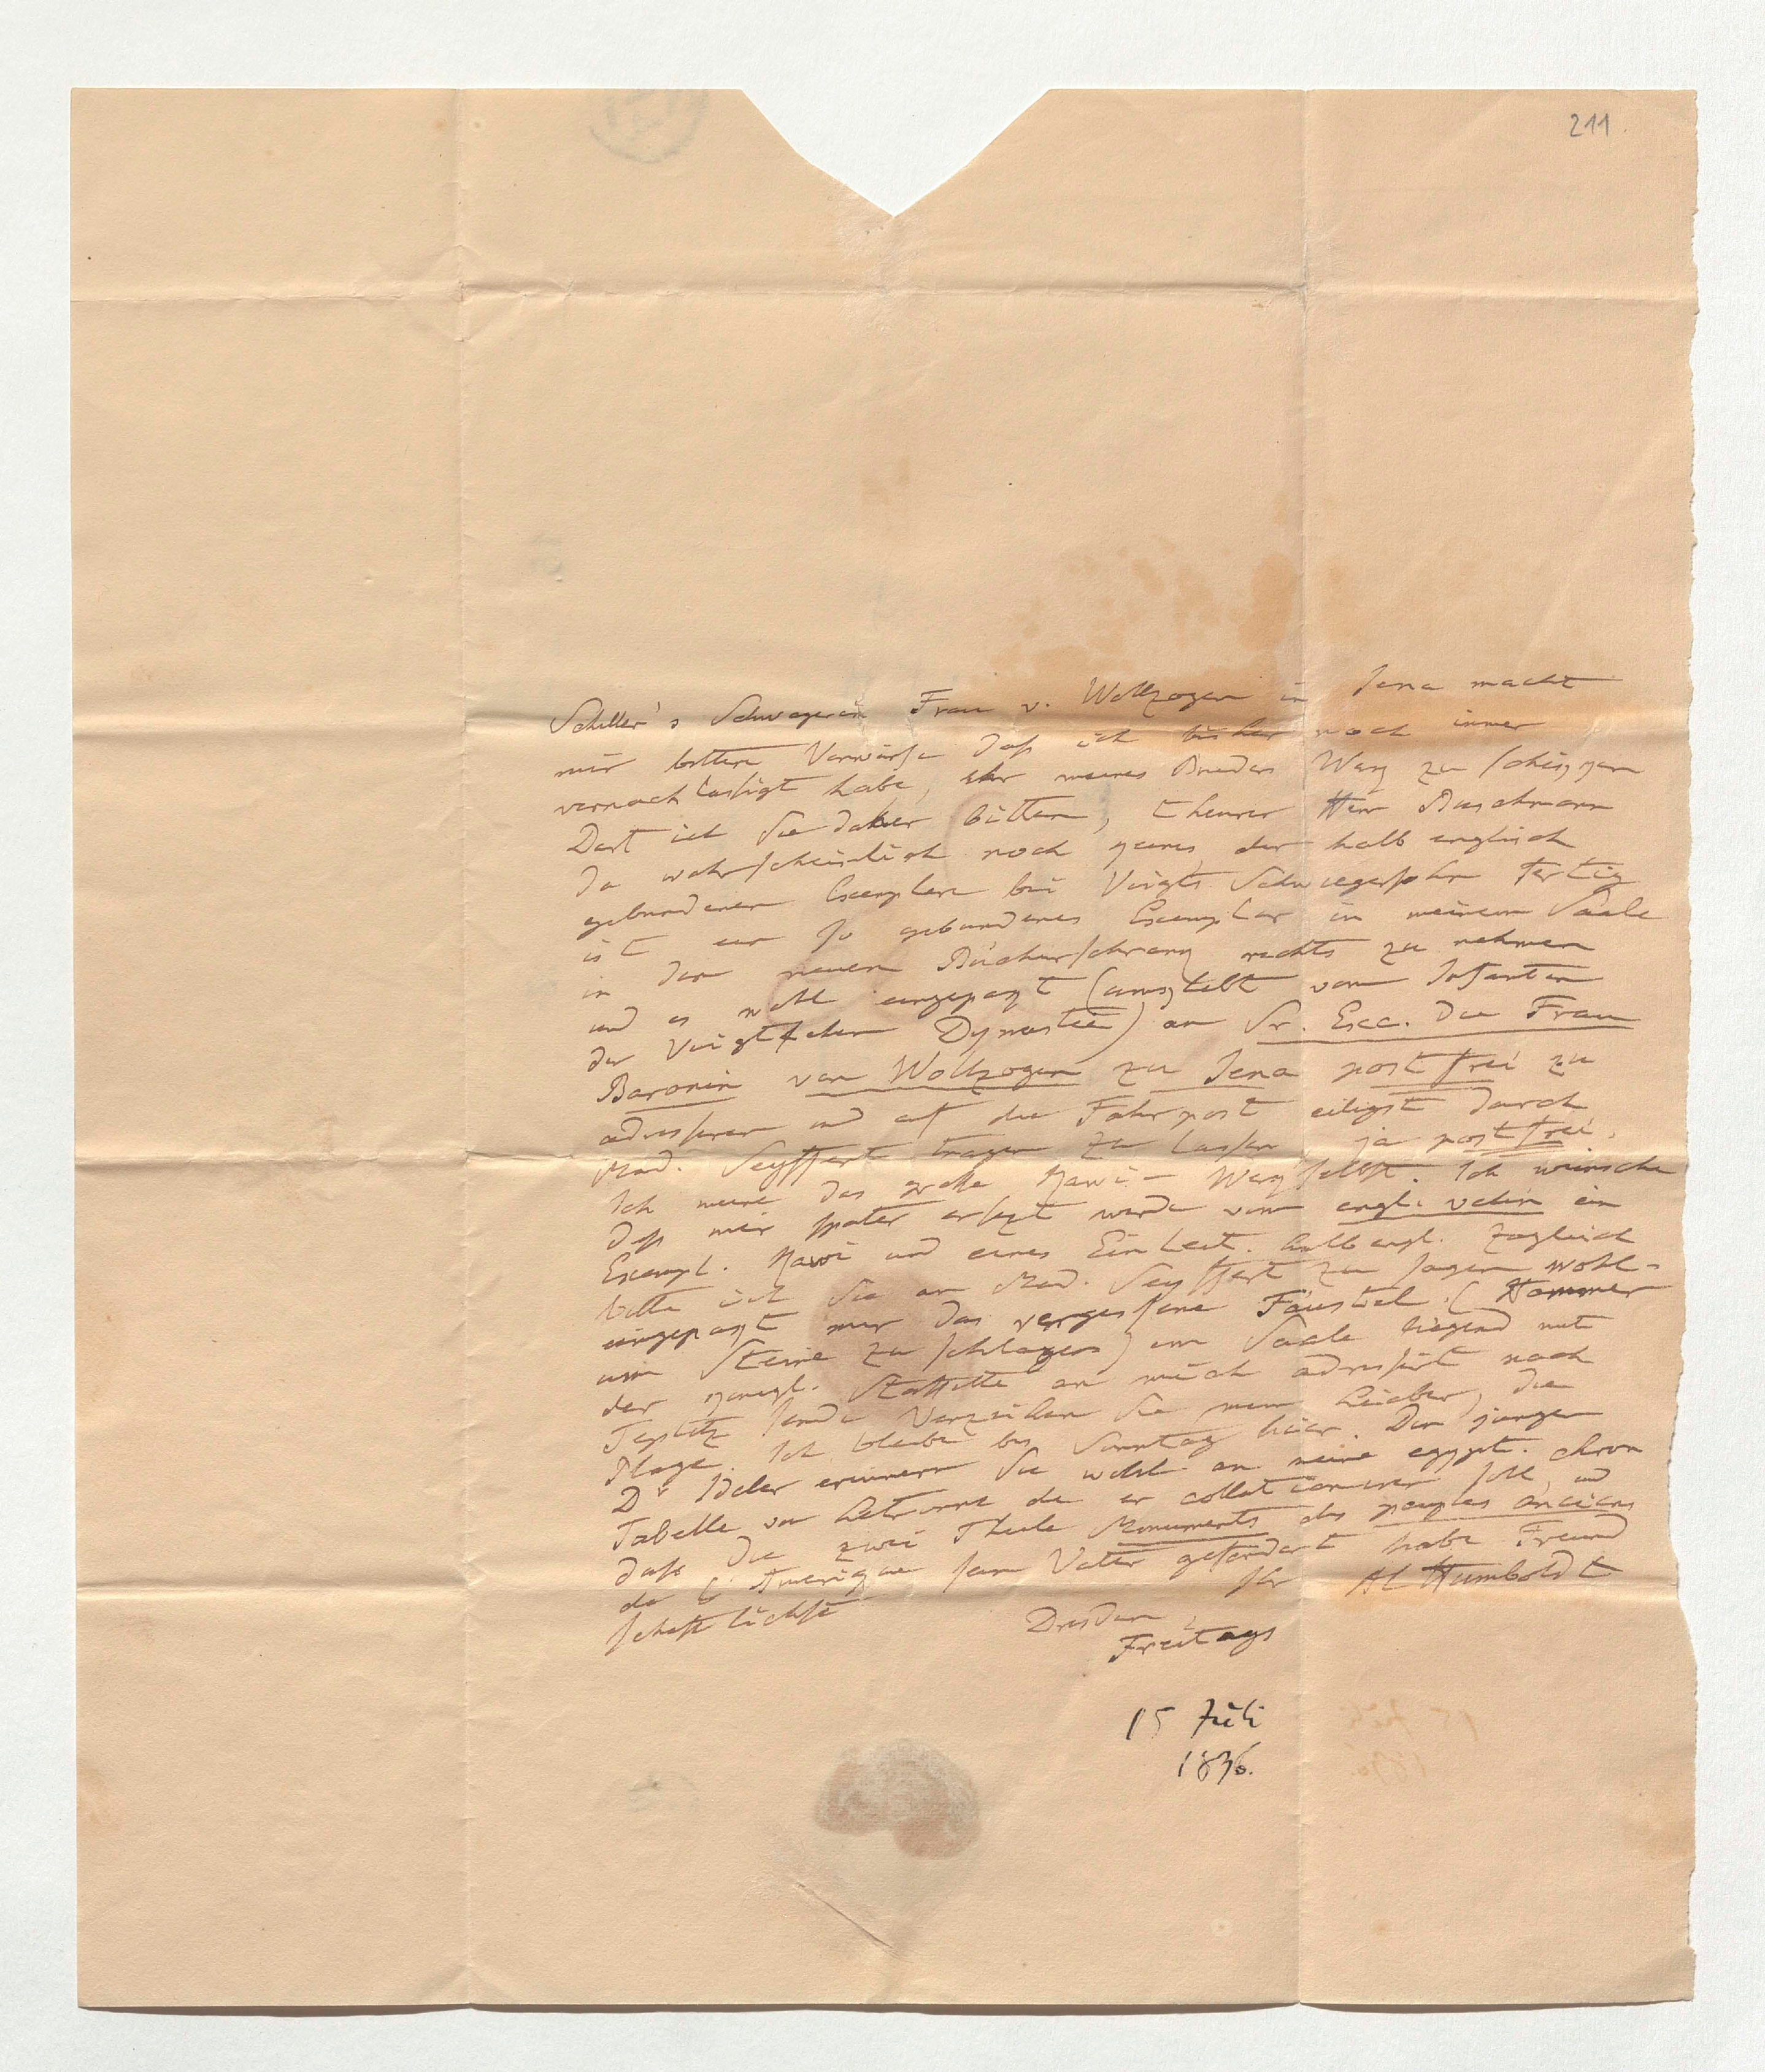 211.
Schiller's Schwagerin Frau v. Wollzogen in Jena macht
mir bittere Vorwürfe daß ich bisher noch immer
vernachlässigt habe, ihr meines Bruders Werk zu schikken
Darf ich Sie daher bitten, theurer Herr Buschmann
da wahrscheinlich noch keines der halb englisch
gebundenen Exemplare bei Voigts Schwiegersohn fertig
ist ein so gebundenes Exemplar in meinem Saale
in dem neuen Bücherschrank rechts zu nehmen
und es wohl eingepakt (umklebt vom Infanten
der Voigtschen Dynastie) an Sr. Exc. die Frau
Baronin von Wollzogen zu Jena postfrei zu
adressiren und auf die Fahrpost eiligst durch
Mad. Seyffert tragen zu lassen ja postfrei.
Ich meine das große Kawi-Werk selbst. Ich wünsche
daß mir später ersezt werde vom engl. velin ein
Exempl. Kawi und eines Einleit. halb engl. Zugleich
bitte ich Sie an Mad. Seyffert zu sagen wohl-
eingepakt mir das vergessene Fäustel (Hammer
um Steine zu schlagen) im Saale liegend mit
der königl. Staffette an mich adressirt nach
Teplitz sende Verzeihen Sie mein Lieber, die
Plage. Ich bleibe bis Sonntag hier. Den jungen
Dr Ideler erinnern Sie wohl an meine egypt. chron
Tabelle von Letronne die er collationiren soll und
daß die zwei Theile Monuments des peuples anciens
de l'Amerique sein Vater gefordert habe Freund
schaftlichst Ihr Al Humboldt
Dresden,
Freitags
15 Juli
1836.